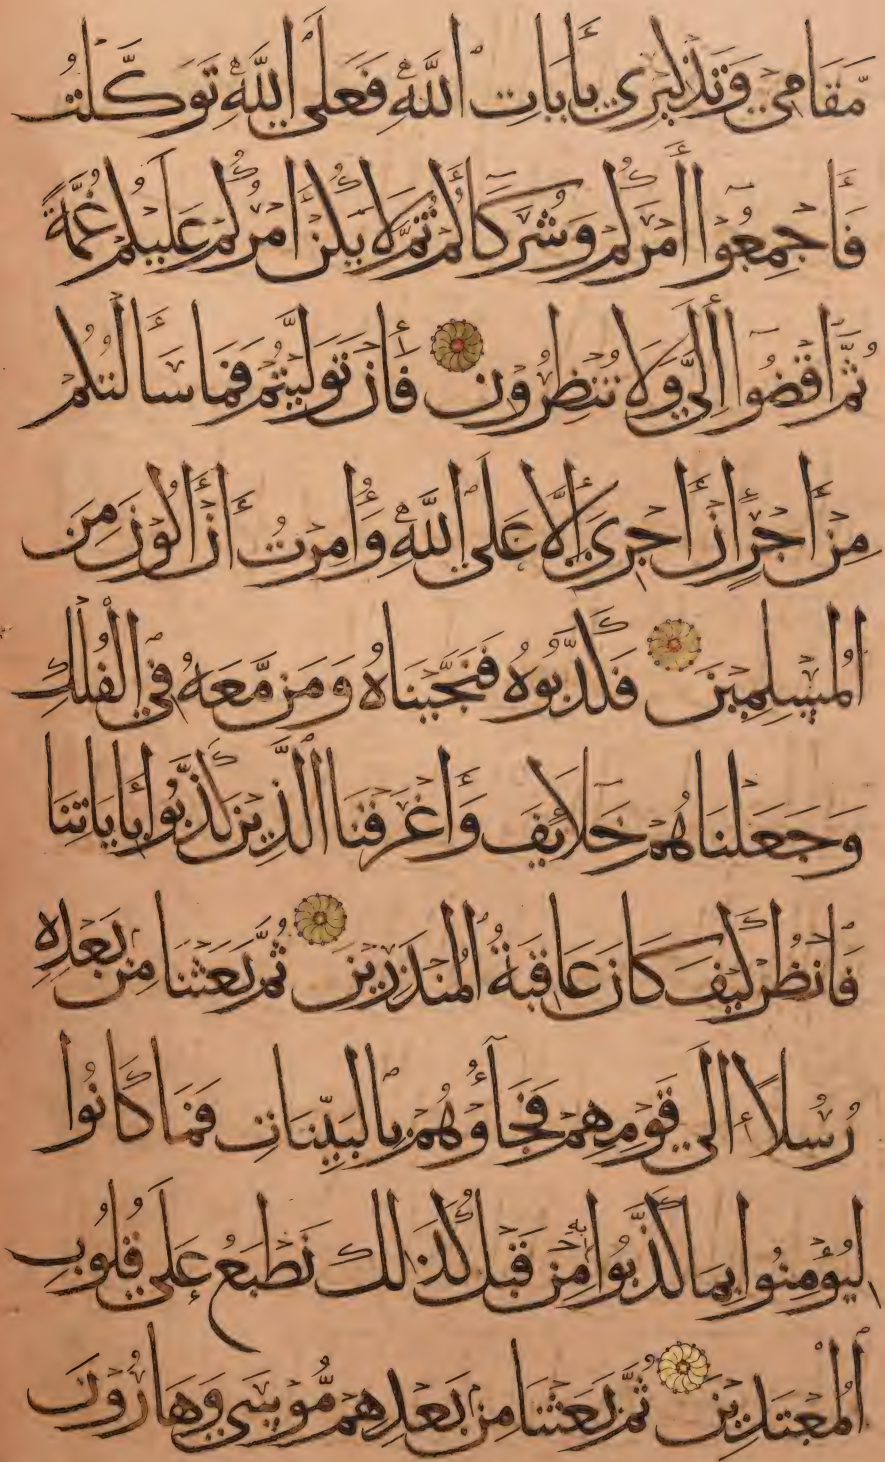 مَّقَامِي وَتَذْكِيرِي بِأَيَاتِ اللَّهِ فَعَلَى اللَّهِ تَوَكَّلْتُ
فَأَجْمِعُوا أَمْرَكُمْ وَشُرَكَاءَكُمْ ثُمَّ لَا يَكُنْ أَمْرُكُمْ عَلَيْكُمْ غُمَّةً
ثُمَّ اقْضُوا إِلَيَّ وَلَا تُنْظِرُونِ فَإِنْ تَوَلَّيْتُمْ فَمَا سَأَلْتُكُمْ
مِنْ أَجْرٍ إِنْ أَجْرِيَ إِلَّا عَلَى اللَّهِ وَأُمِرْتُ أَنْ أَكُونَ مِنَ
الْمُسْلِمِينَ فَكَذَّبُوهُ فَنَجَّيْنَاهُ وَمَنْ مَّعَهُ فِي الْفُلْكِ
وَجَعَلْنَاهُمْ خَلَائِفَ وَأَغْرَقْنَا الَّذِينَ كَذَّبُوا بِأَيَاتِنَا
فَانْظُرْ كَيْفَ كَانَ عَاقِبَةُ الْمُنْذَرِينَ ثُمَّ بَعَثْنَا مِنْ بَعْدِهِ
رُسُلًا إِلَى قَوْمِهِمْ فَجَاؤُهُمْ بِالْبَيِّنَاتِ فَمَا كَانُوا
لِيُؤْمِنُوا بِمَا كَذَّبُوا بِهِ مِنْ قَبْلُ كَذَلِكَ نَطْبَعُ عَلَى قُلُوبِ
الْمُعْتَدِينَ ثُمَّ بَعَثْنَا مِنْ بَعْدِهِمْ مُّوسَى وَهَارُونَ